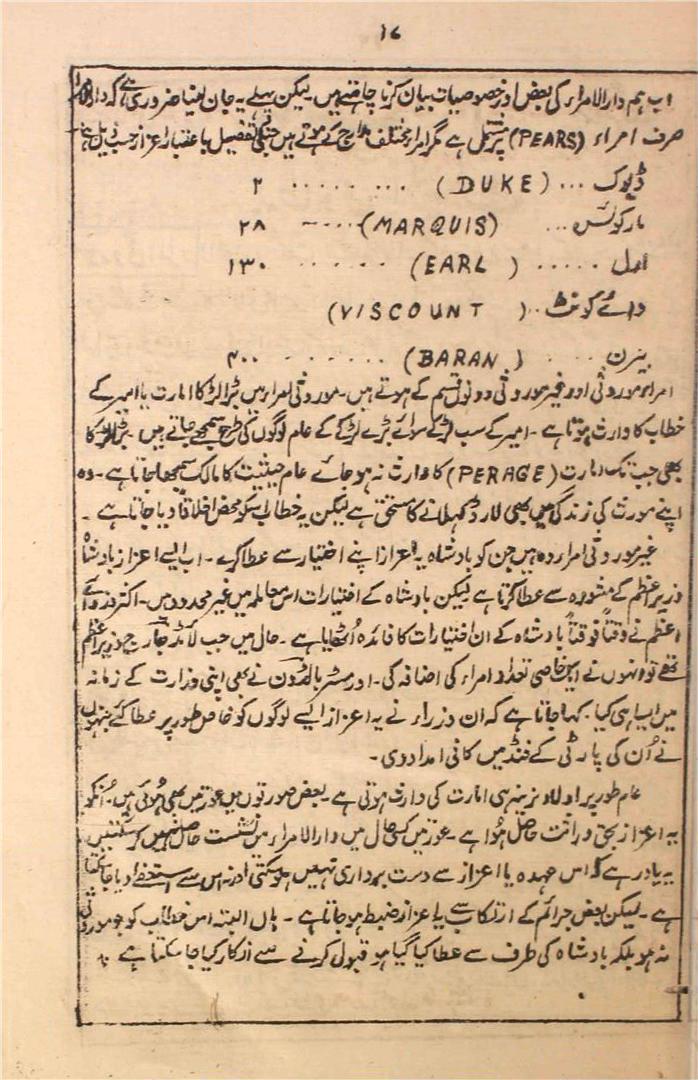 ۱۶
اب ہم دارالامراء کی بعض اور خصوصیات بیان کرنا چاہتے ہیں ۔ لیکن پہلے یہ جان لینا ضروری ہے کہ دارالامراء
صرف امراء (PEARS) پر مشتمل ہے مگر امراء مختلف مدارج کے ہوتے ہیں جنکی تفصیل باعتبار اعزاز حسب ذیل ہے
ڈیوک ... (DUKE) ........ ۲
مارکوئس ... (MARQUIS) ..... ۲۸
ارل ..... (EARL) ...... ۱۳۰
وائے کونٹ .. (VISCOUNT)
بیرن .... (BARAN) ....... ۴۰۰
امراء موروثی اور غیر موروثی دونوں قسم کے ہوتے ہیں ۔ موروثی امراء میں بڑا لڑکا امارت یا امیر کے
خطاب کا وارث ہوتا ہے ۔ امیر کے سب لڑکے سوائے بڑے لڑکے کے عام لوگوں کی طرح سمجھے جاتے ہیں ۔ بڑا لڑکا
بھی جب تک امارت (PERAGE) کا وارث نہ ہو جائے عام حیثیت کا مالک سمجھا جاتا ہے ۔ وہ
اپنے مورث کی زندگی میں بھی لارڈ کہلانے کا مستحق ہے لیکن یہ خطاب اسکو محض اخلاقاً دیا جاتا ہے ۔
غیر موروثی امراء وہ ہیں جن کو بادشاہ یہ اعزاز اپنے اختیار سے عطا کرے ۔ اب ایسے اعزاز بادشاہ
وزیر اعظم کے مشورہ سے عطا کرتا ہے لیکن بادشاہ کے اختیارات اس معاملہ میں غیر محدود ہیں ۔ اکثر وزرائے
اعظم نے وقتاً فوقتاً بادشاہ کے ان اختیارات کا فائدہ اُٹھایا ہے ۔ حال میں جب لائڈ جارج وزیر اعظم
تھے تو انہوں نے ایک خاصی تعداد امراء کی اضافہ کی ۔ اور مسٹر بالڈون نے بھی اپنی وزارت کے زمانہ
میں ایسا ہی کیا ۔ کہا جاتا ہے کہ ان وزراء نے یہ اعزاز ایسے لوگوں کو خاص طور پر عطا کئے جنہوں
نے اُن کی پارٹی کے فنڈ میں کافی امداد دی ۔
عام طور پر اولاد نرینہ ہی امارت کی وارث ہوتی ہے ۔ بعض صورتوں میں عورتیں بھی ہوئی ہیں ۔ اُنکو
یہ اعزاز بحق وراثت حاصل ہوا ہے ۔ عورتیں کسی حال میں دارالامراء میں نشست حاصل نہیں کر سکتیں ۔
یہ یاد رہے کہ اس عہدہ یا اعزاز سے دست برداری نہیں ہو سکتی اور نہ اس سے استعفا دیا جا سکتا
ہے ۔ لیکن بعض جرائم کے ارتکاب سے یہ اعزاز ضبط ہو جاتا ہے ۔ ہاں البتہ اس خطاب کو جو موروثی
نہ ہو بلکہ بادشاہ کی طرف سے عطا کیا گیا ہو قبول کرنے سے انکار کیا جا سکتا ہے ؞